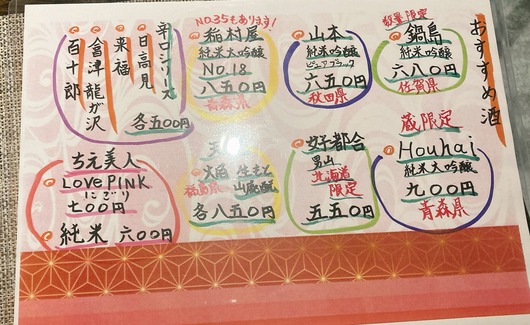 おすすめ酒
数量限定
鍋島
純米吟醸
六八〇円
佐賀県
山本
純米吟醸
ピュアブラック
六五〇円
秋田県
NO.35もあります!
稲村屋
純米大吟醸
No.18
八五〇円
青森県
辛口シリーズ
日高見
来福
會津龍が沢
百十郎
各五00円
蔵限定
Houhai
純米大吟醸
九〇〇円
青森県
好都合
男山
北海道
限定
五五〇円
生もと
山廃酛
福島県
各八五〇円
ちえ美人
LOVE PINK
にごり
七〇〇円
純米 六〇〇円